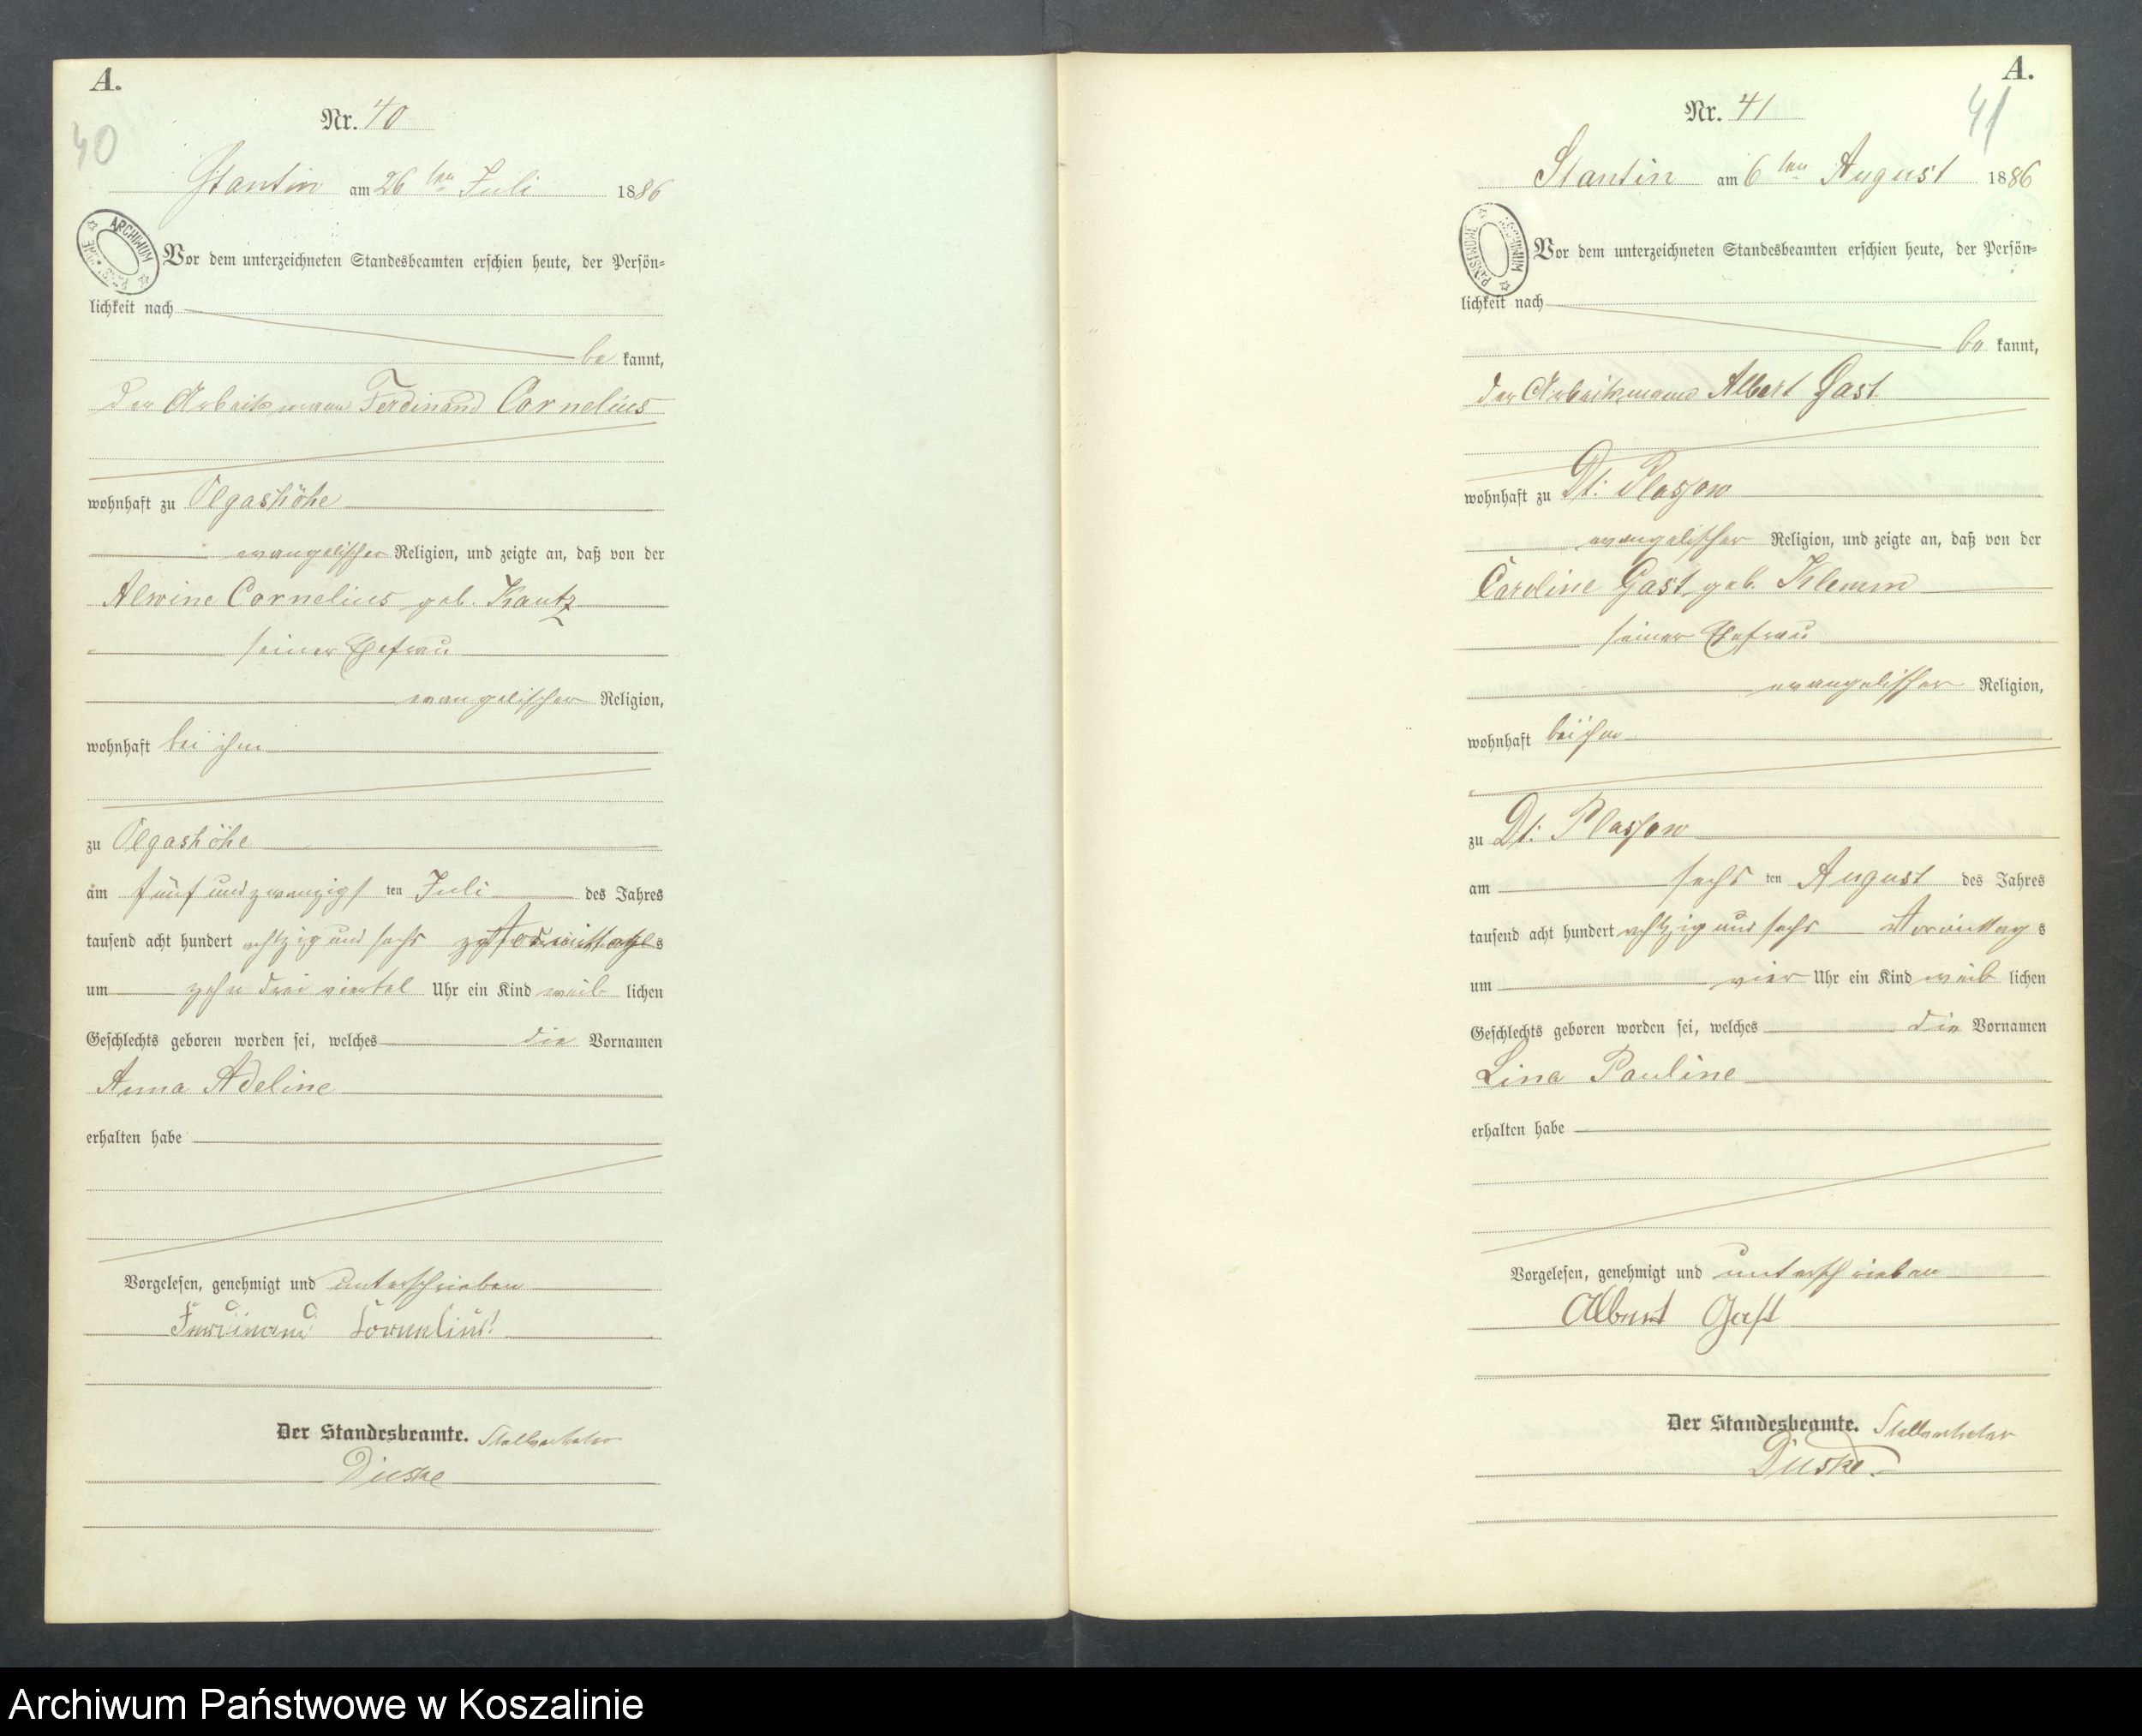 A.
Nr. 40
40
Stantin am 26ten Juli 1886
ARCHIWUM
Vor dem unterzeichneten Standesbeamten erschien heute, der Persön-
lichkeit nach
be kannt,
der Arbeitsmann Ferdinand Cornelius
wohnhaft zu Olgashöhe
evangelischer Religion, und zeigte an, daß von der
Alwine Cornelius geb. Kautz
seiner Ehefrau
evangelischer Religion,
wohnhaft bei ihm
zu Olgashöhe
am fünfundzwanzigs ten Juli des Jahres
tausend acht hundert achtzig und sechs Vormittags
um zehn drei viertel Uhr ein Kind weib lichen
Geschlechts geboren worden sei, welches die Vornamen
Anna Adeline
erhalten habe
Vorgelesen, genehmigt und unterschrieben
Ferdinand Cornelius
Der Standesbeamte. Stellvertreter
Dieske
A.
Nr. 41
41
Stantin am 6ten August 1886
PAŃSTWOWE ARCHIWUM
Vor dem unterzeichneten Standesbeamten erschien heute, der Persön-
lichkeit nach
be kannt,
der Arbeitsmann Albert Gast
wohnhaft zu Dt: Plassow
evangelischer Religion, und zeigte an, daß von der
Caroline Gast geb. Klemm
seiner Ehefrau
evangelischer Religion,
wohnhaft bei ihm
zu Dt: Plassow
am sechs ten August des Jahres
tausend acht hundert achtzig und sechs Vormittag s
um vier Uhr ein Kind weib lichen
Geschlechts geboren worden sei, welches die Vornamen
Lina Pauline
erhalten habe
Vorgelesen, genehmigt und unterschrieben
Albert Gast
Der Standesbeamte. Stellvertreter
Dieske.
Archiwum Państwowe w Koszalinie